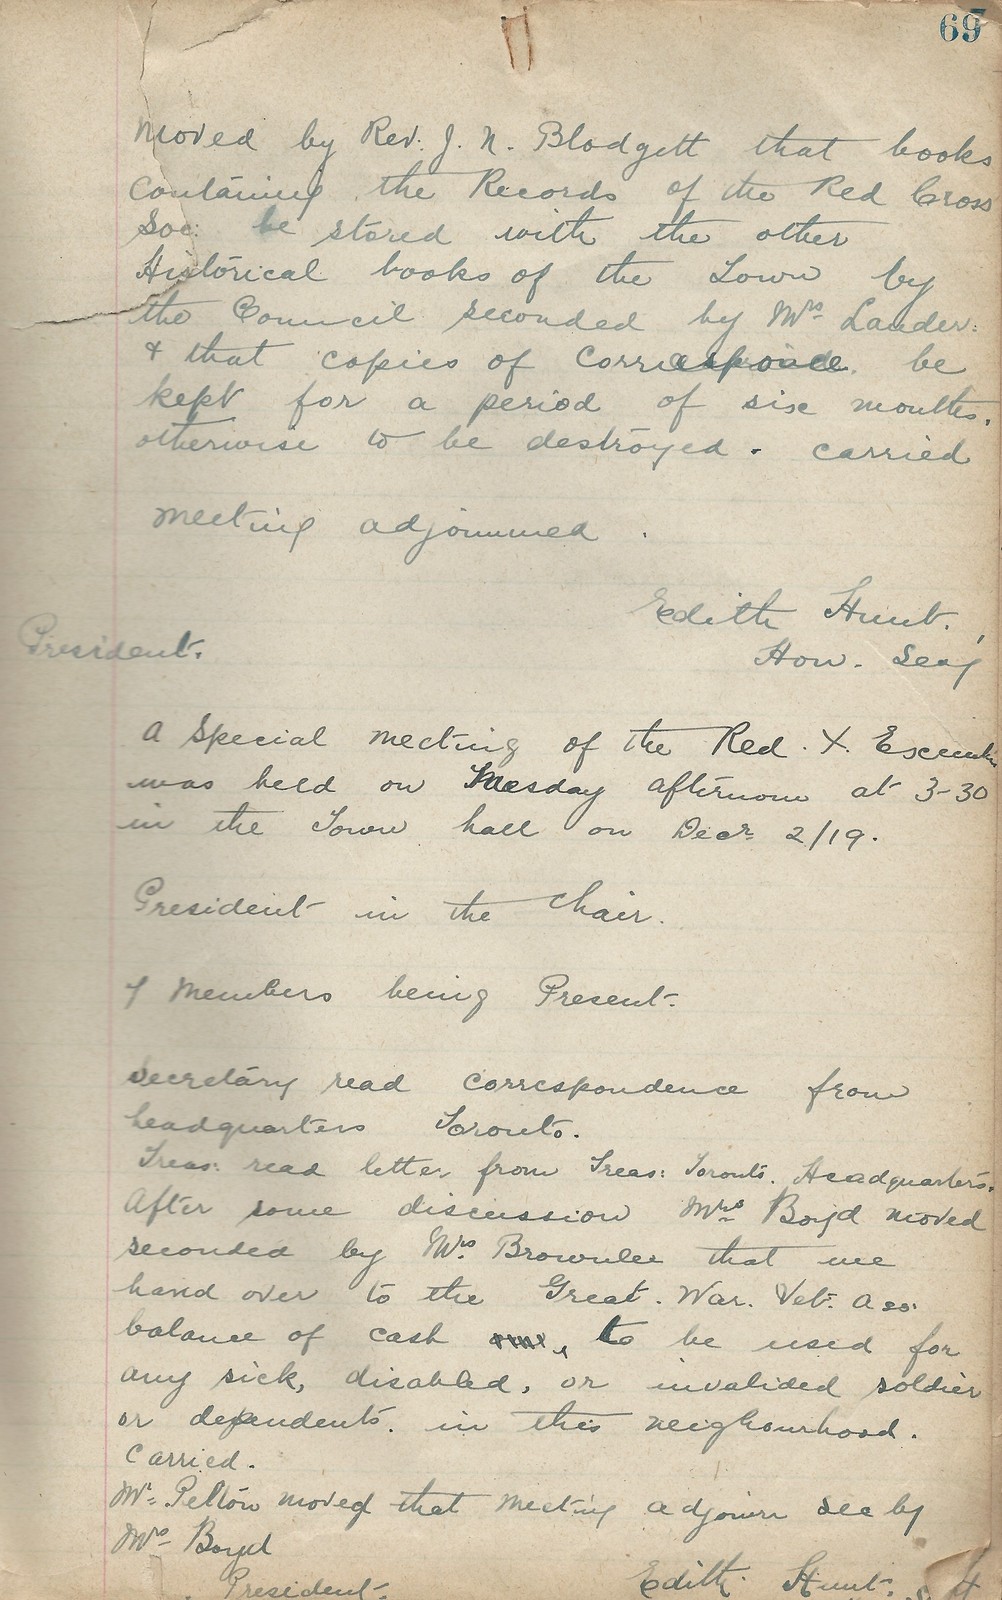 69
Moved by Rev. J. N. Blodgett that books
containing the Records of the Red Cross
Soc: be stored with the other
Historical books of the Town by
the Council seconded by Mrs Lauder.
& that copies of correspondence be
kept for a period of six months.
otherwise to be destroyed. carried
Meeting adjourned.
Edith Hunt.
President.
Hon. Secy
A Special meeting of the Red X. Executive
was held on Tuesday afternoon at 3-30
in the Town hall on Decr 2/19.
President in the Chair.
7 Members being Present.
Secretary read correspondence from
headquarters Toronto.
Treas: read letter from Treas: Toronto. Headquarters.
After some discussion Mrs Boyd moved
seconded by Mrs Brownlee that we
hand over to the Great. War. Vet. Ass:
balance of cash, to be used for
any sick, disabled, or invalided soldier
or dependents. in this neighourhood.
Carried.
Mr. Pelton moved that meeting adjourn sec by
Mrs Boyd
President.
Edith Hunt.